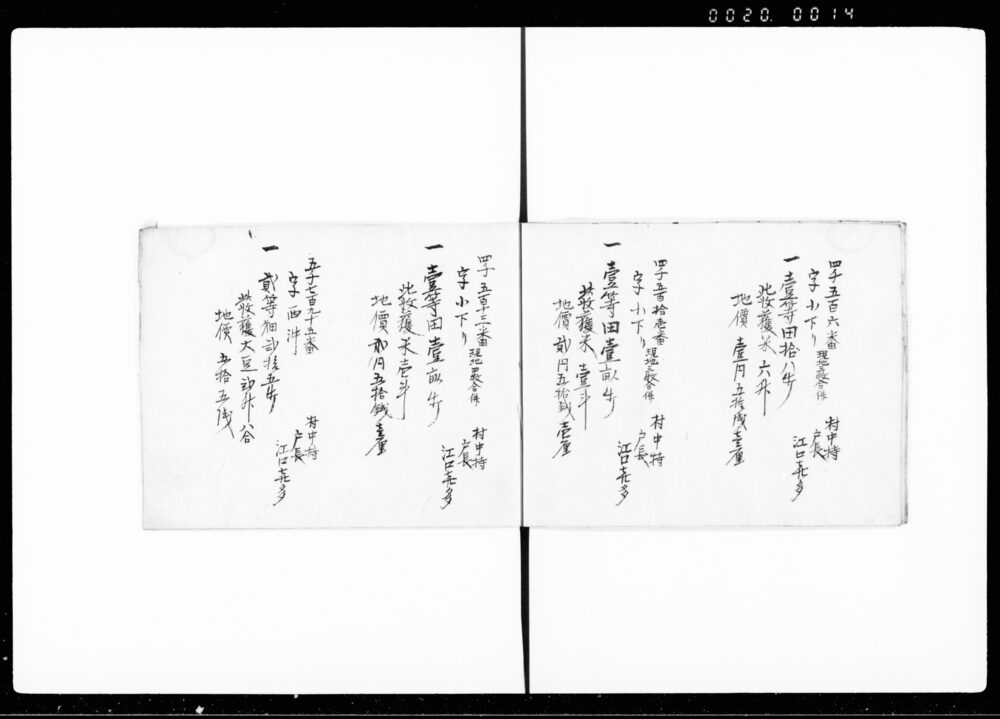 0020. 0014
四千五百六番 現地三枚合併
字小下り
村中持
戸長
江口喜多
一 壹等田拾八歩
此収穫米六升
地價 壹円五拾銭壹厘
四千五百拾壱番 現地三枚合併
字小下り
村中持
戸長
江口喜多
一 壹等田壹畝歩
此収穫米 壹斗
地價 貳円五拾銭壱厘
四千五百十二番 現地四枚合併
字小下り
村中持
戸長
江口喜多
一 壹等田壹畝歩
此収穫米壱斗
地價 貳円五拾銭壹厘
五千七百九十五番
字西沖
村中持
戸長
江口喜多
一 貳等畑弐拾五歩
此収穫大豆弐升八合
地價 五拾五銭